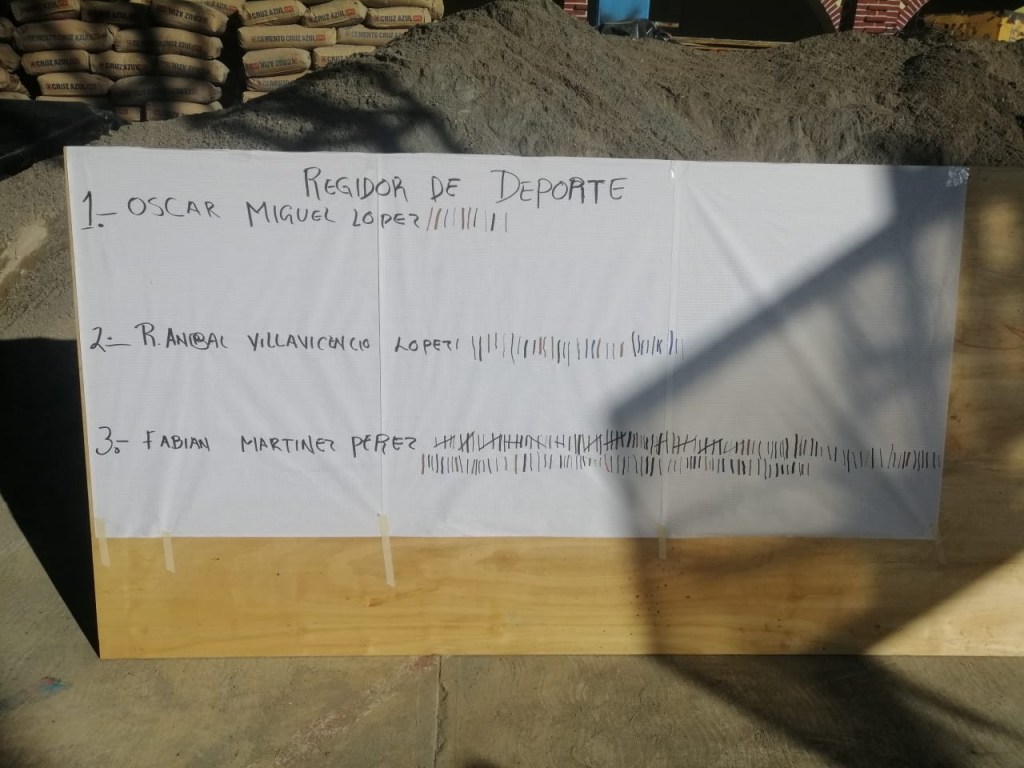 CRUZ AZUL
CEMENTO CRUZ AZUL
CRUZ AZUL
CRUZ AZUL
REGIDOR DE DEPORTE
1.- OSCAR MIGUEL LOPEZ
2.- R. ANIBAL VILLAVICENCIO LOPEZ
3.- FABIAN MARTINEZ PEREZ